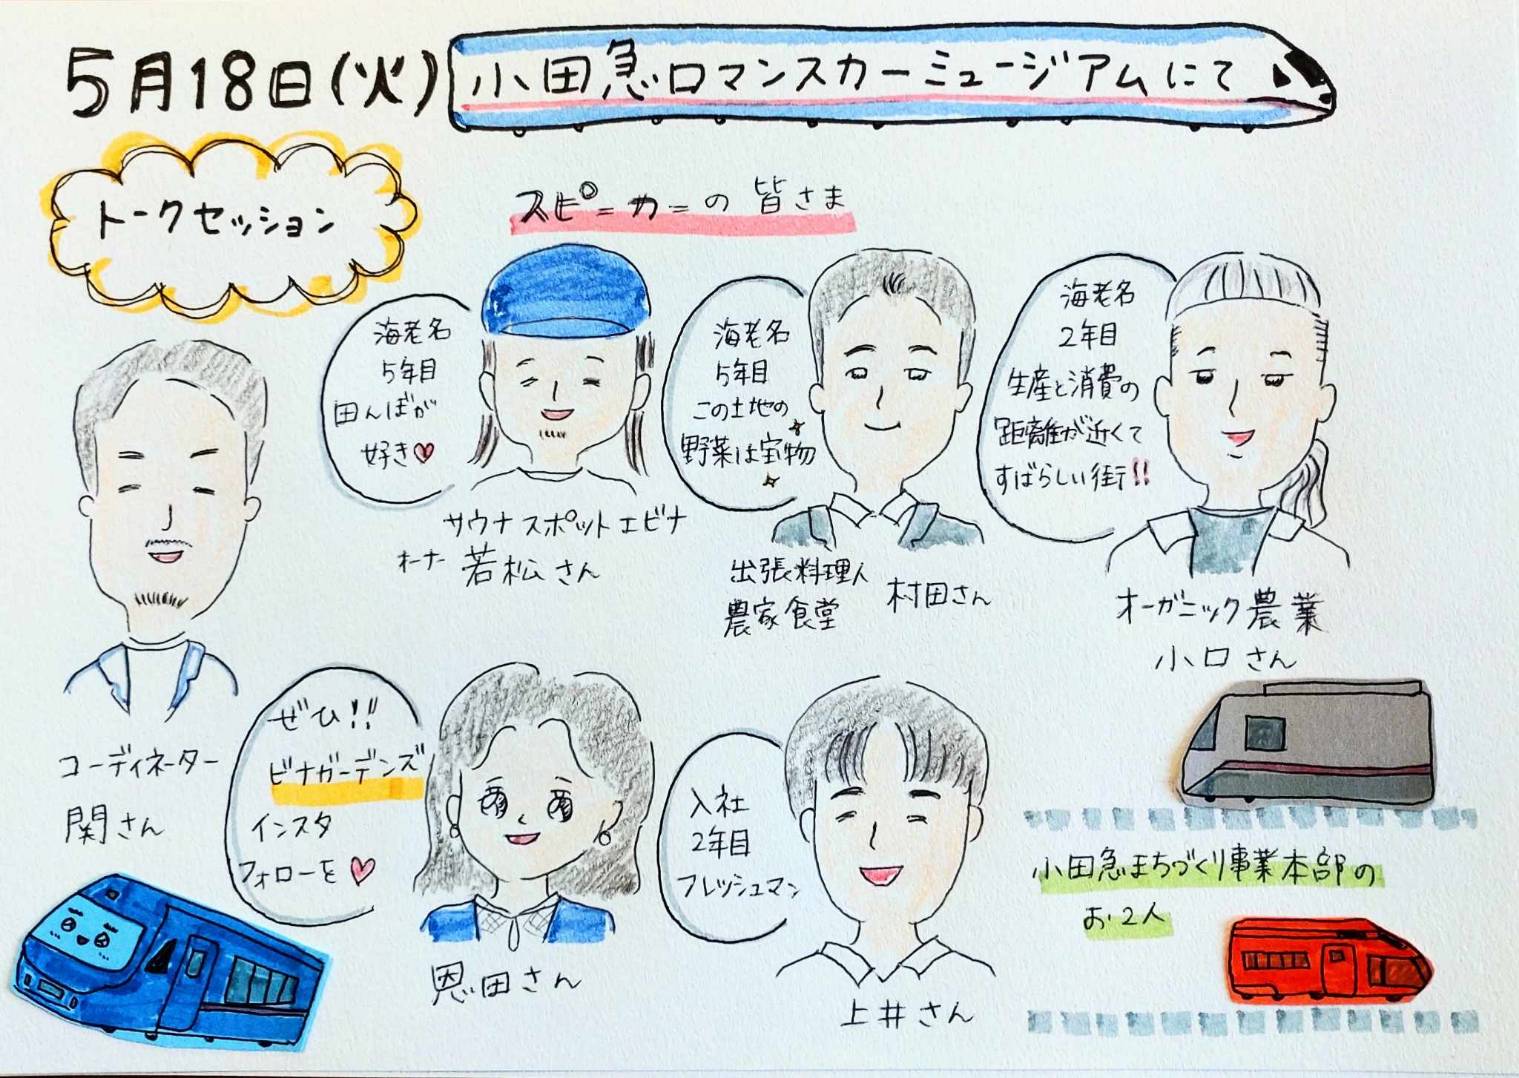 5月18日(火)
小田急ロマンスカーミュージアムにて
トークセッション
スピーカーの皆さま
海老名
5年目
田んぼが
好き
サウナスポットエビナ
オーナー 若松さん
海老名
5年目
この土地の
野菜は宝物
出張料理人
農家食堂
村田さん
海老名
2年目
生産と消費の
距離が近くて
すばらしい街!!
オーガニック農業
小口さん
コーディネーター
関さん
ぜひ!!
ビナガーデンズ
インスタ
フォローを
恩田さん
入社
2年目
フレッシュマン
上井さん
小田急まちづくり事業本部の
お2人